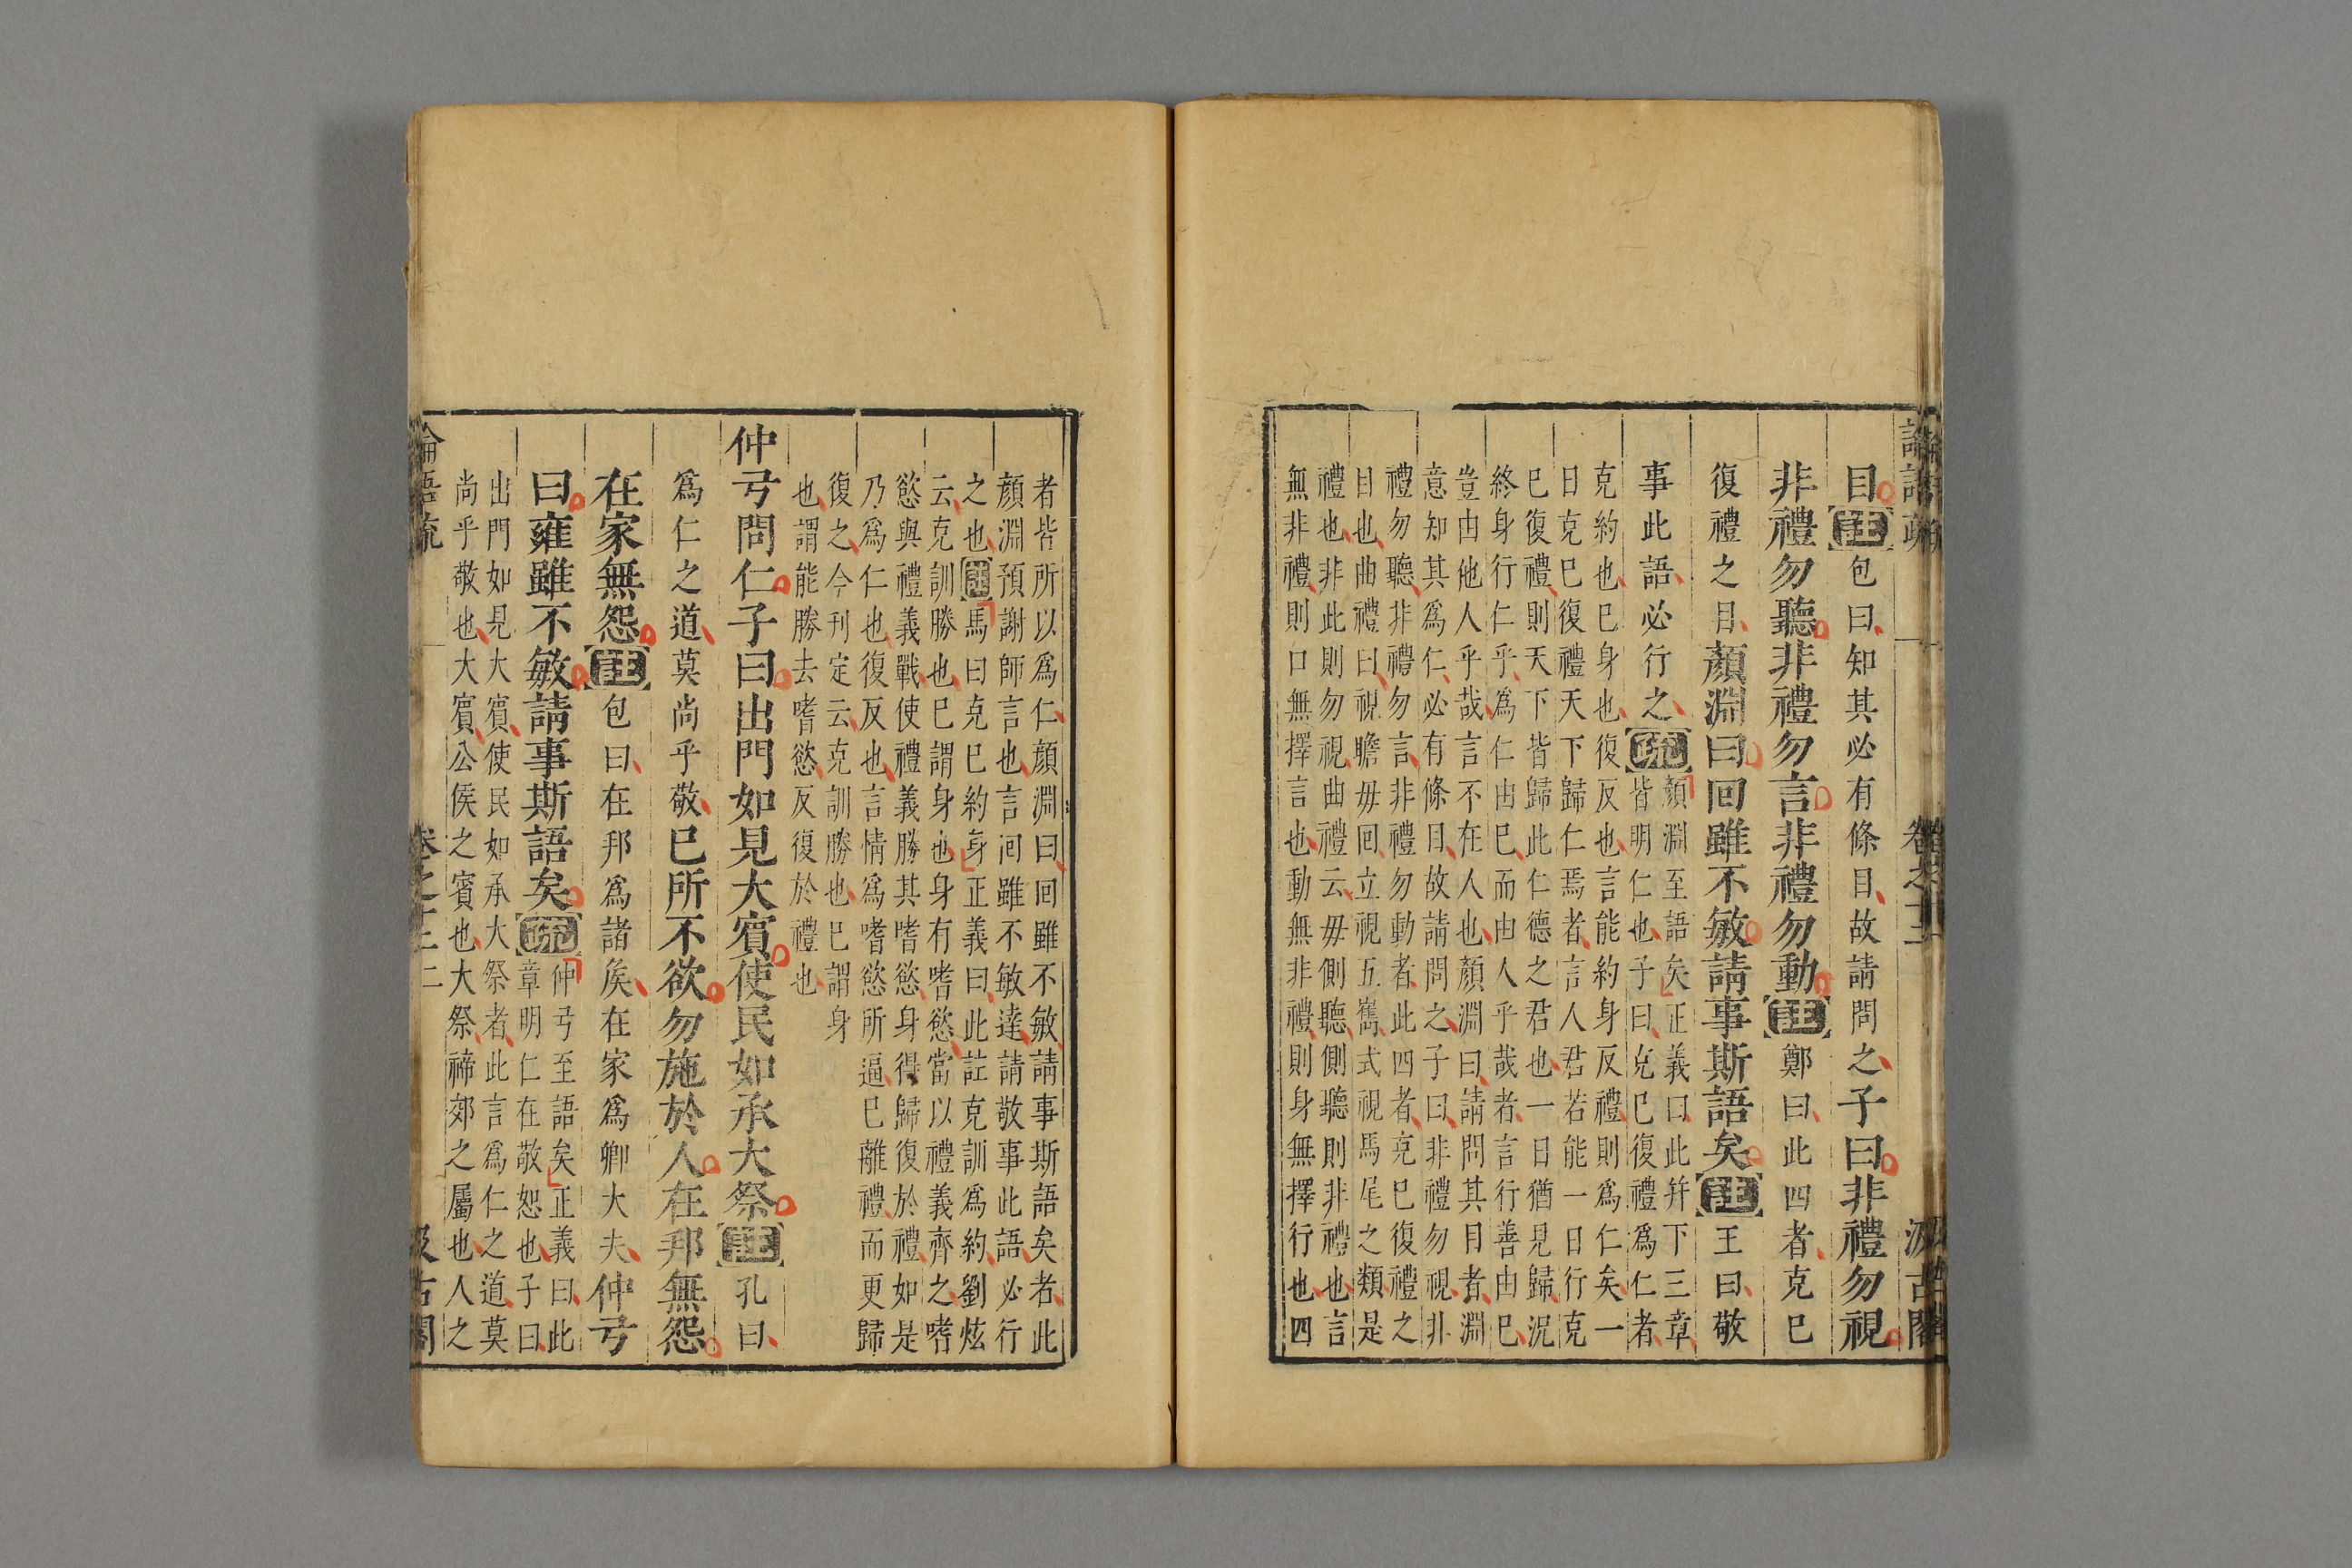 論語疏 卷之十二 汲古閣
目註包曰知其必有條目故請問之子曰非禮勿視
非禮勿聽非禮勿言非禮勿動註鄭曰此四者克巳
復禮之目顏淵曰回雖不敏請事斯語矣註王曰敬
事此語必行之疏顏淵至語矣正義曰此幷下三章
皆明仁也子曰克巳復禮爲仁者
克約也巳身也復反也言能約身反禮則爲仁矣一
日克巳復禮天下歸仁焉者言人君若能一日行克
巳復禮則天下皆歸此仁德之君也一日猶見歸況
終身行仁乎爲仁由巳而由人乎哉者言行善由巳
豈由他人乎哉言不在人也顏淵曰請問其目者淵
意知其爲仁必有條目故請問之子曰非禮勿視非
禮勿聽非禮勿言非禮勿動者此四者克巳復禮之
目也曲禮曰視瞻毋回立視五雟式視馬尾之類是
禮也非此則勿視曲禮云毋側聽側聽則非禮也言
無非禮則口無擇言也動無非禮則身無擇行也四
者皆所以爲仁顏淵曰回雖不敏請事斯語矣者此
顏淵預謝師言也言回雖不敏達請敬事此語必行
之也註馬曰克巳約身正義曰此註克訓爲約劉炫
云克訓勝也巳謂身也身有嗜慾當以禮義齊之嗜
慾與禮義戰使禮義勝其嗜慾身得歸復於禮如是
乃爲仁也復反也言情爲嗜慾所逼巳離禮而更歸
復之今刊定云克訓勝也巳謂身
也謂能勝去嗜慾反復於禮也
仲弓問仁子曰出門如見大賓使民如承大祭註孔曰
爲仁之道莫尚乎敬巳所不欲勿施於人在邦無怨
在家無怨註包曰在邦爲諸矦在家爲卿大夫仲弓
曰雍雖不敏請事斯語矣疏仲弓至語矣正義曰此
章明仁在敬恕也子曰
出門如見大賓使民如承大祭者此言爲仁之道莫
尚乎敬也大賓公侯之賓也大祭禘郊之屬也人之
論語疏 卷之十二 二 汲古閣